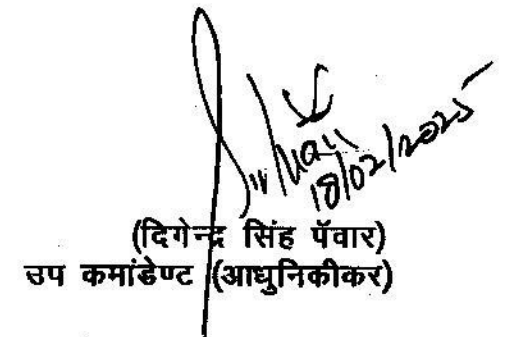 18/02/2025
(दिगेन्द्र सिंह पॅवार)
उप कमांडेण्ट (आधुनिकीकर)